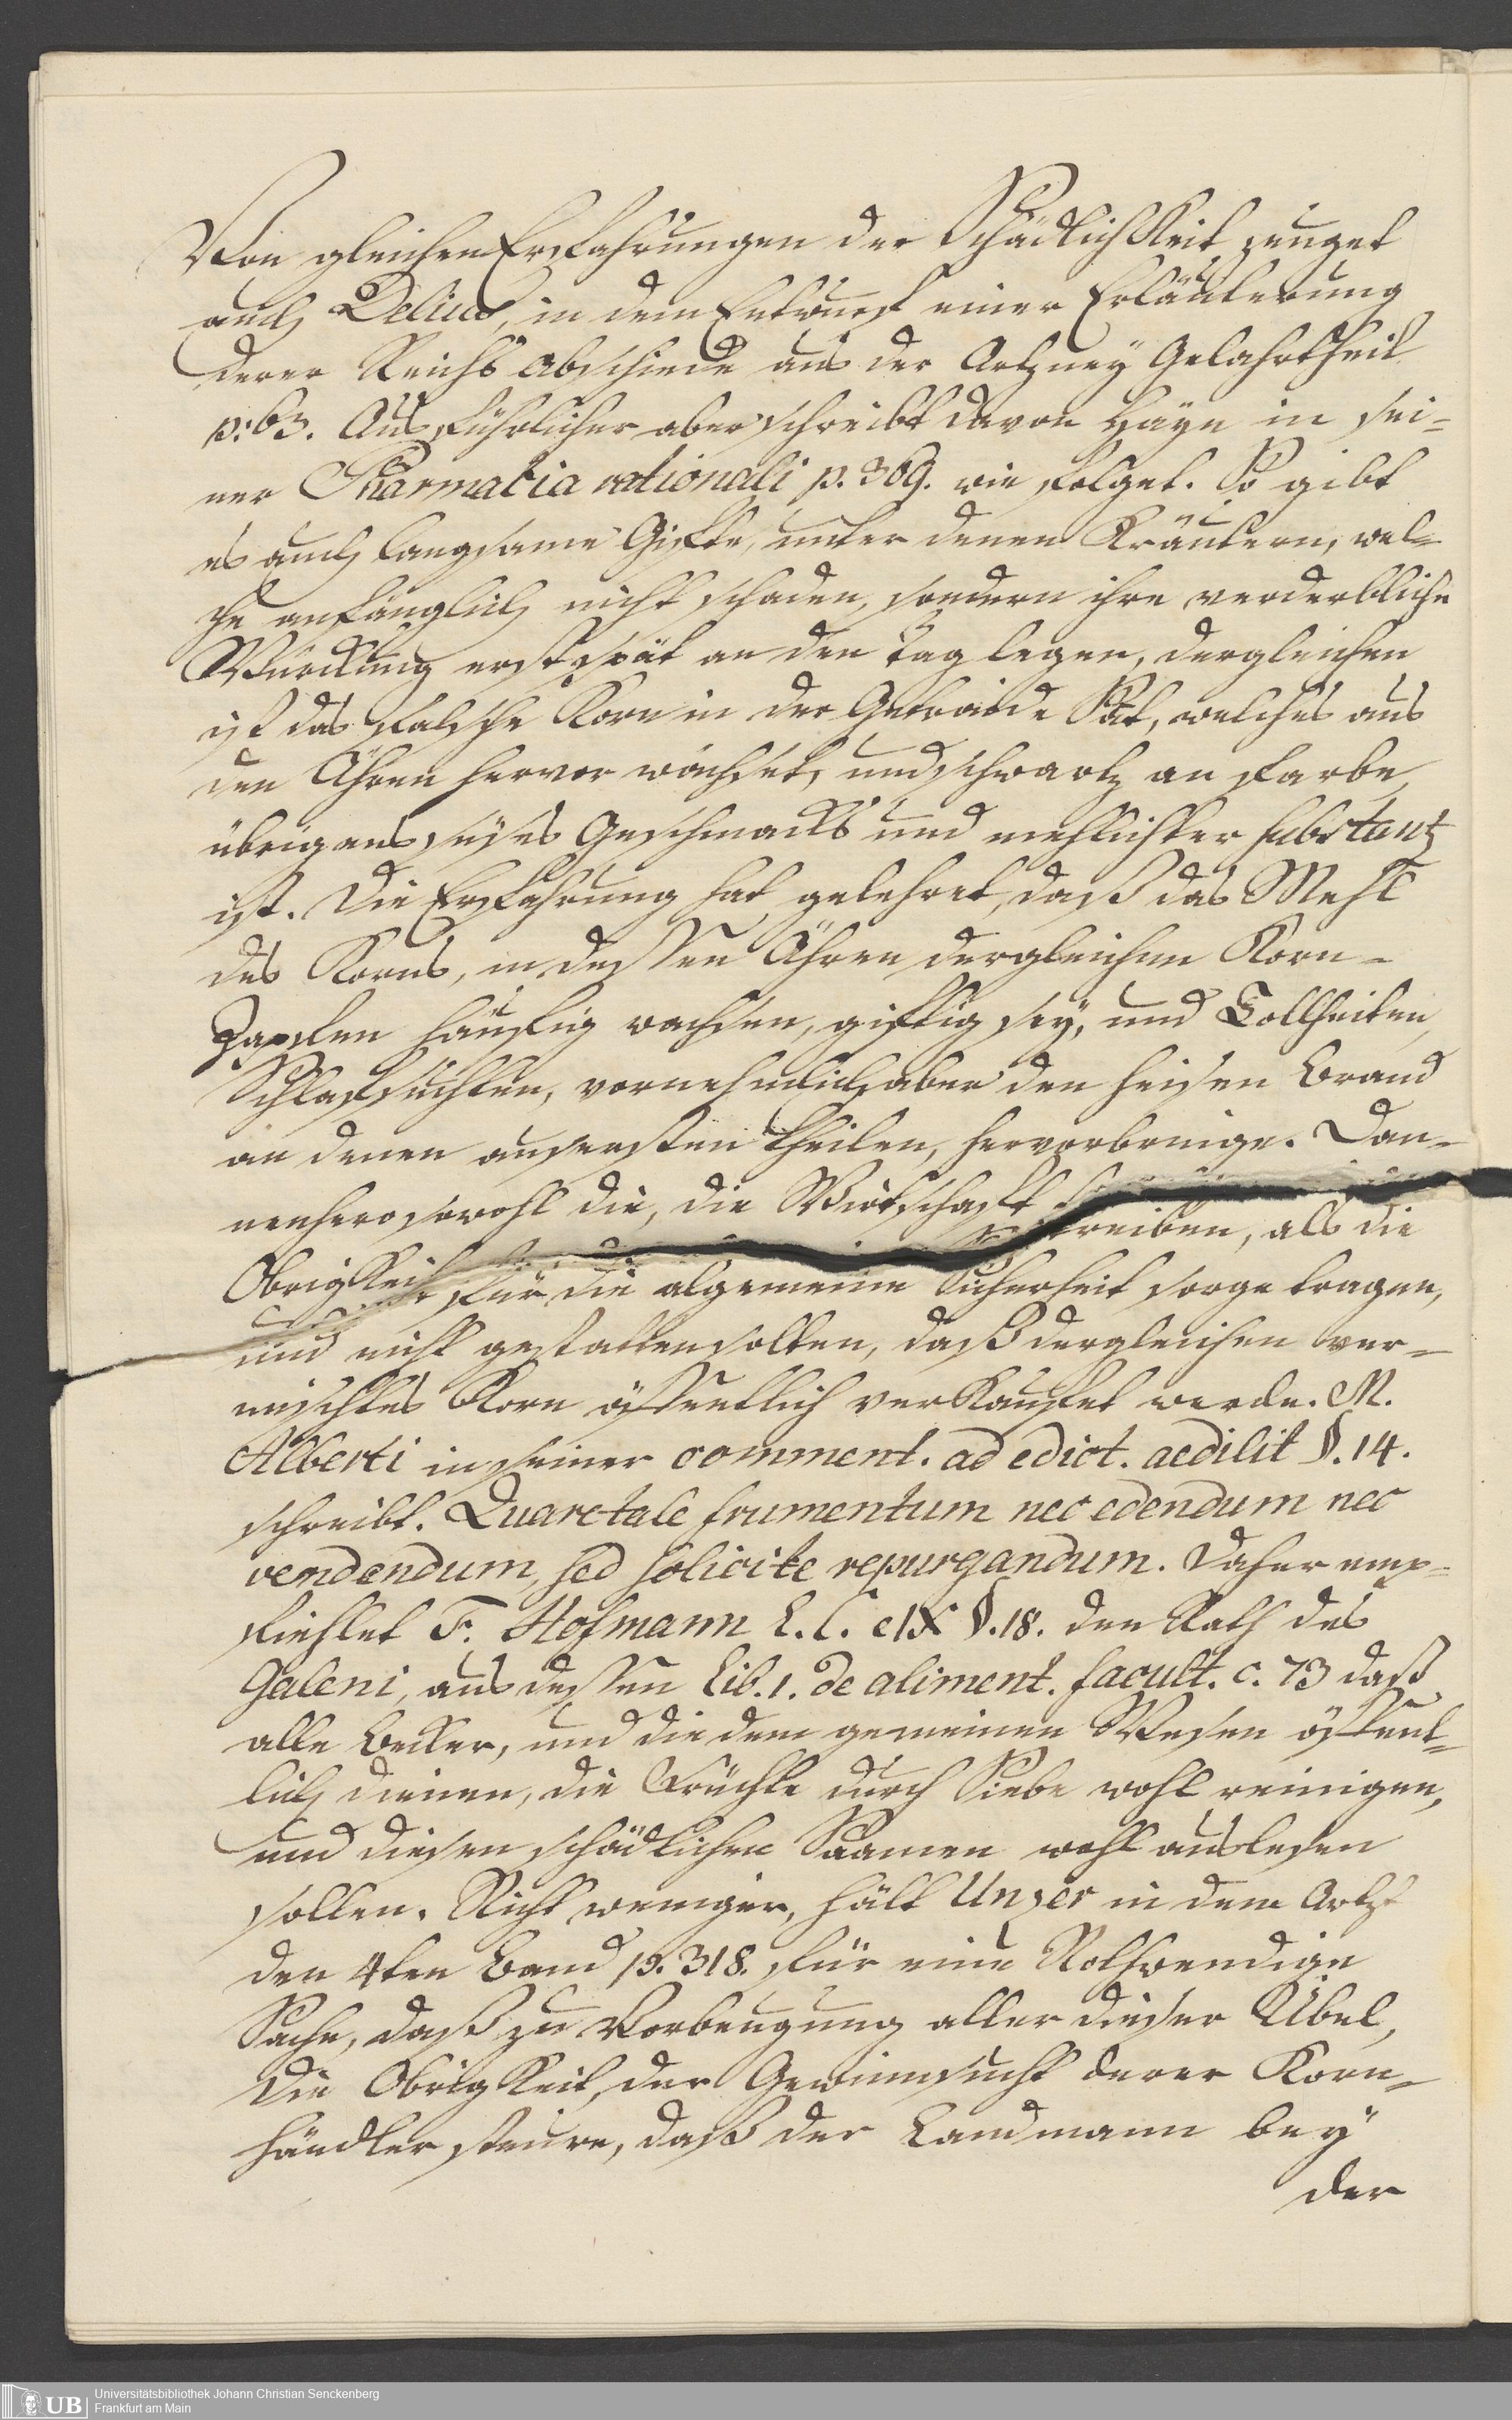 Von gleichen Erfahrungen der Schädlichkeit zeuget
auch Delius, in dem Entwurf einer Erläuterung
derer Reichs Abschiede aus der Artzney Gelahrtheit
p: 63. Ausführlicher aber schreibt davon Hayn in sei=
ner Pharmatia rationali p. 369. wie folget. So gibt
es auch langsame Gifte, unter denen Kräutern, wel=
che anfänglich nicht schaden, sondern ihre verderbliche
Würckung erst spät an den Tag legen, dergleichen
ist das falsche Korn in der Getraide Sat, welches aus
den Ähren hervor wächset, und schwartz an Farbe,
übrigens süses Geschmacks und mehlichter substantz
ist. Die Erfahrung hat gelehret, daß das Mehl
des Korns, in dessen Ähren dergleichen Korn=
Zapfen häufig wachsen, giftig sey, und Tollheiten,
Schlafsuchten, vornehmlich aber den heisen Brand
an denen äusersten Theilen, hervorbringe. Dan=
nenhero sowohl die, die Wirtschaft treiben, als die
Obrigkeit für die algemeine Sicherheit sorge tragen,
und nicht gestatten solten, daß dergleichen ver=
mischtes Korn öffentlich verkaufet werde. M.
Alberti in seiner comment. ad edict. aedilit §. 14.
schreibt. Quare tale frumentum nec edendum nec
vendendum, sed solicite repurgandum. Daher emp=
fiehlet F. Hofmann l. c. c IX §. 18. den Rath des
Galeni, aus dessen Lib. 1. de aliment. facult. c. 73 daß
alle Becker, und die dem gemeinen Wesen öffent=
lich dienen, die Früchte durch Siebe wohl reinigen,
und diesen schädlichen Saamen wohl auslesen
sollen. Nicht weniger, hält Unzer in dem Artzt
den 4ten Band p. 318. für eine Nothwendige
Sache, daß zu Vorbeugung aller dieser Übel,
die Obrigkeit, der Gewinnsucht derer Korn=
händler steure, daß der Landmann bey
der
UB Universitätsbibliothek Johann Christian Senckenberg
Frankfurt am Main